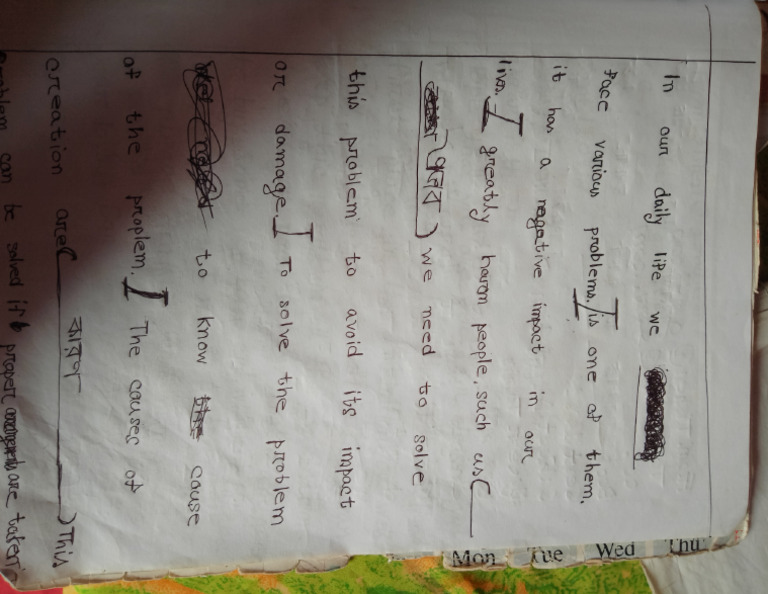 In our daily life we
face various problems. I is one of them.
it has a negative impact in our
lives. I greatly harm people, such as (
প্রভাব ) we need to solve
this problem to avoid its impact
or damage. I To solve the problem
to know cause
of the problem. I The causes of
creation are (কারণ) This
problem can be solved if proper are taken
Mon Tue Wed Thu